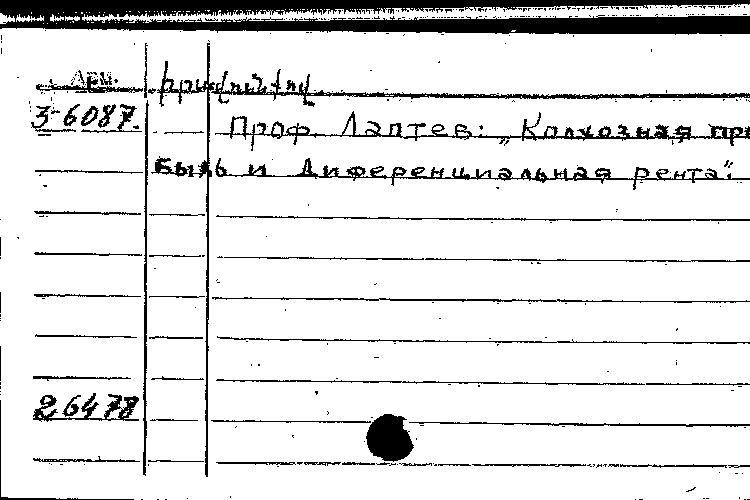 АРМ. իրավունքով
3-6087. Проф. Лаптев: „Колхозная при
быль и Диференциальная рента".
26478